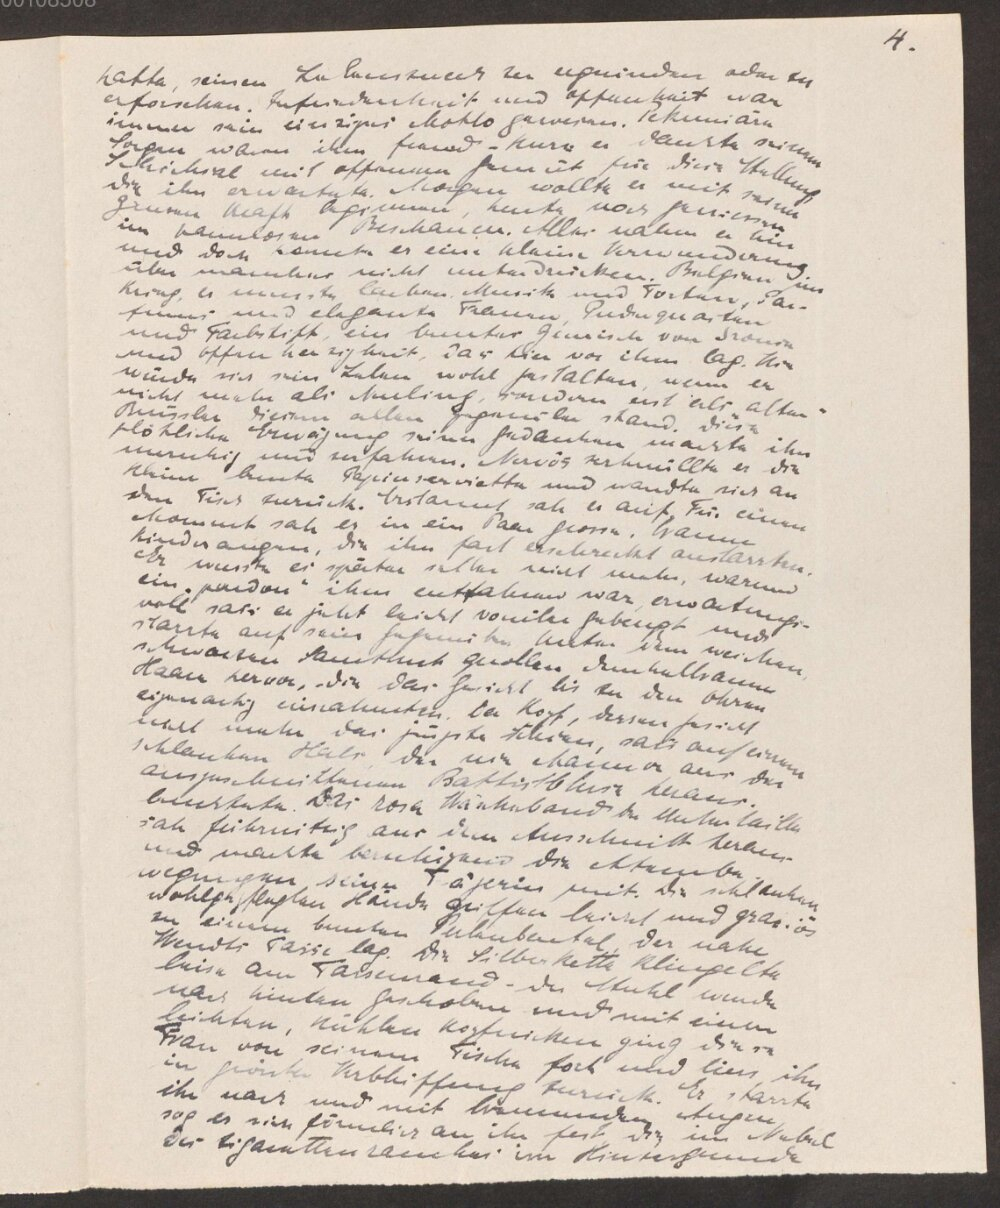 00108508
4.
hatte, seinen Lebenszweck zu ergründen oder zu
erforschen. Zufriedenheit und Offenheit war
immer sein einziges Motto gewesen. Pekuniäre
Sorgen waren ihm fremd - kurz er dankte seinem
Schicksal mit offenem Gemüt für diese Stellung
die ihn erwartete. Morgen wollte er mit seiner
ganzen Kraft beginnen, heute noch geniessen
im harmlosen Beschauen. Alles nahm er hin
und doch konnte er eine kleine Verwunderung
über manches nicht unterdrücken. Belgien im
Krieg, es musste lachen. Musik und Torten, Par-
fums und elegante Frauen, Puderquasten
und Farbstift, ein buntes Gemisch von Ironie
und Offenherzigkeit, das hier vor ihm lag. Wie
würde sich sein Leben wohl gestalten, wenn er
nicht mehr als Neuling, sondern erst als „alter“
Brüssler diesem allen gegenüber stand. Diese
plötzliche Erwägung seiner Gedanken machte ihn
unruhig und zerfahren. Nervös zerknüllte er die
kleine bunte Papierserviette und wandte sich an
den Tisch zurück. Erstaunt sah er auf. Für einen
Moment sah er in ein Paar grosse, braune
Kinderaugen, die ihn fast erschreckt anstarrten.
Er wusste es später selber nicht mehr, warum
ein „pardon“ ihm entfahren war, erwartungs-
voll sass er jetzt leicht vornüber gebeugt und
starrte auf sein Gegenüber. Unter dem weichen,
schwarzen Samthut quollen dunkelbraune
Haare hervor, die das Gesicht bis zu den Ohren
eigenartig einrahmten. Der Kopf, dessen Gesicht
nicht mehr das jüngste schien, sass auf einem
schlanken Hals, der wie Marmor aus der
ausgeschnittenen Battistbluse heraus-
leuchtete. Das rosa Wäscheband der Untertaille
sah fürwitzig aus dem Ausschnitt heraus
und machte beruhigend die Atembe-
wegungen seiner Trägerin mit. Die schlanken
wohlgepflegten Hände griffen leicht und graziös
zu einem bunten Perlenbeutel, der nahe
Wendts Tasse lag. Die Silberkette klingelte
leise am Tassenrand - der Stuhl wurde
nach hinten geschoben und mit einem
leichten, kühlen Kopfnicken ging diese
Frau von seinem Tische fort und liess ihn
in grösster Verblüffung zurück. Er starrte
ihr nach und mit brennenden Augen
sog er sich förmlich an ihr fest, die im Nebel
des Zigarettenrauches im Hintergrunde